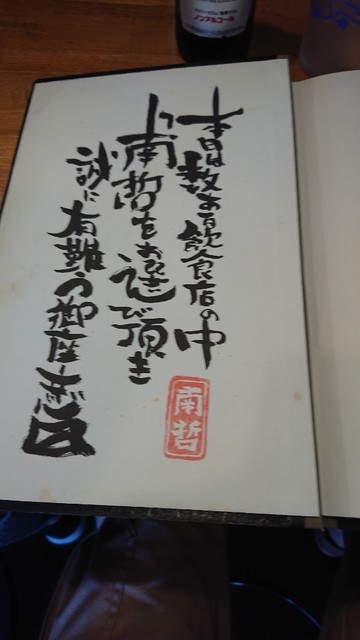 本日は数ある飲食店の中
南哲をお選び頂き
誠に有難う御座居ます
南哲
ノンアルコール